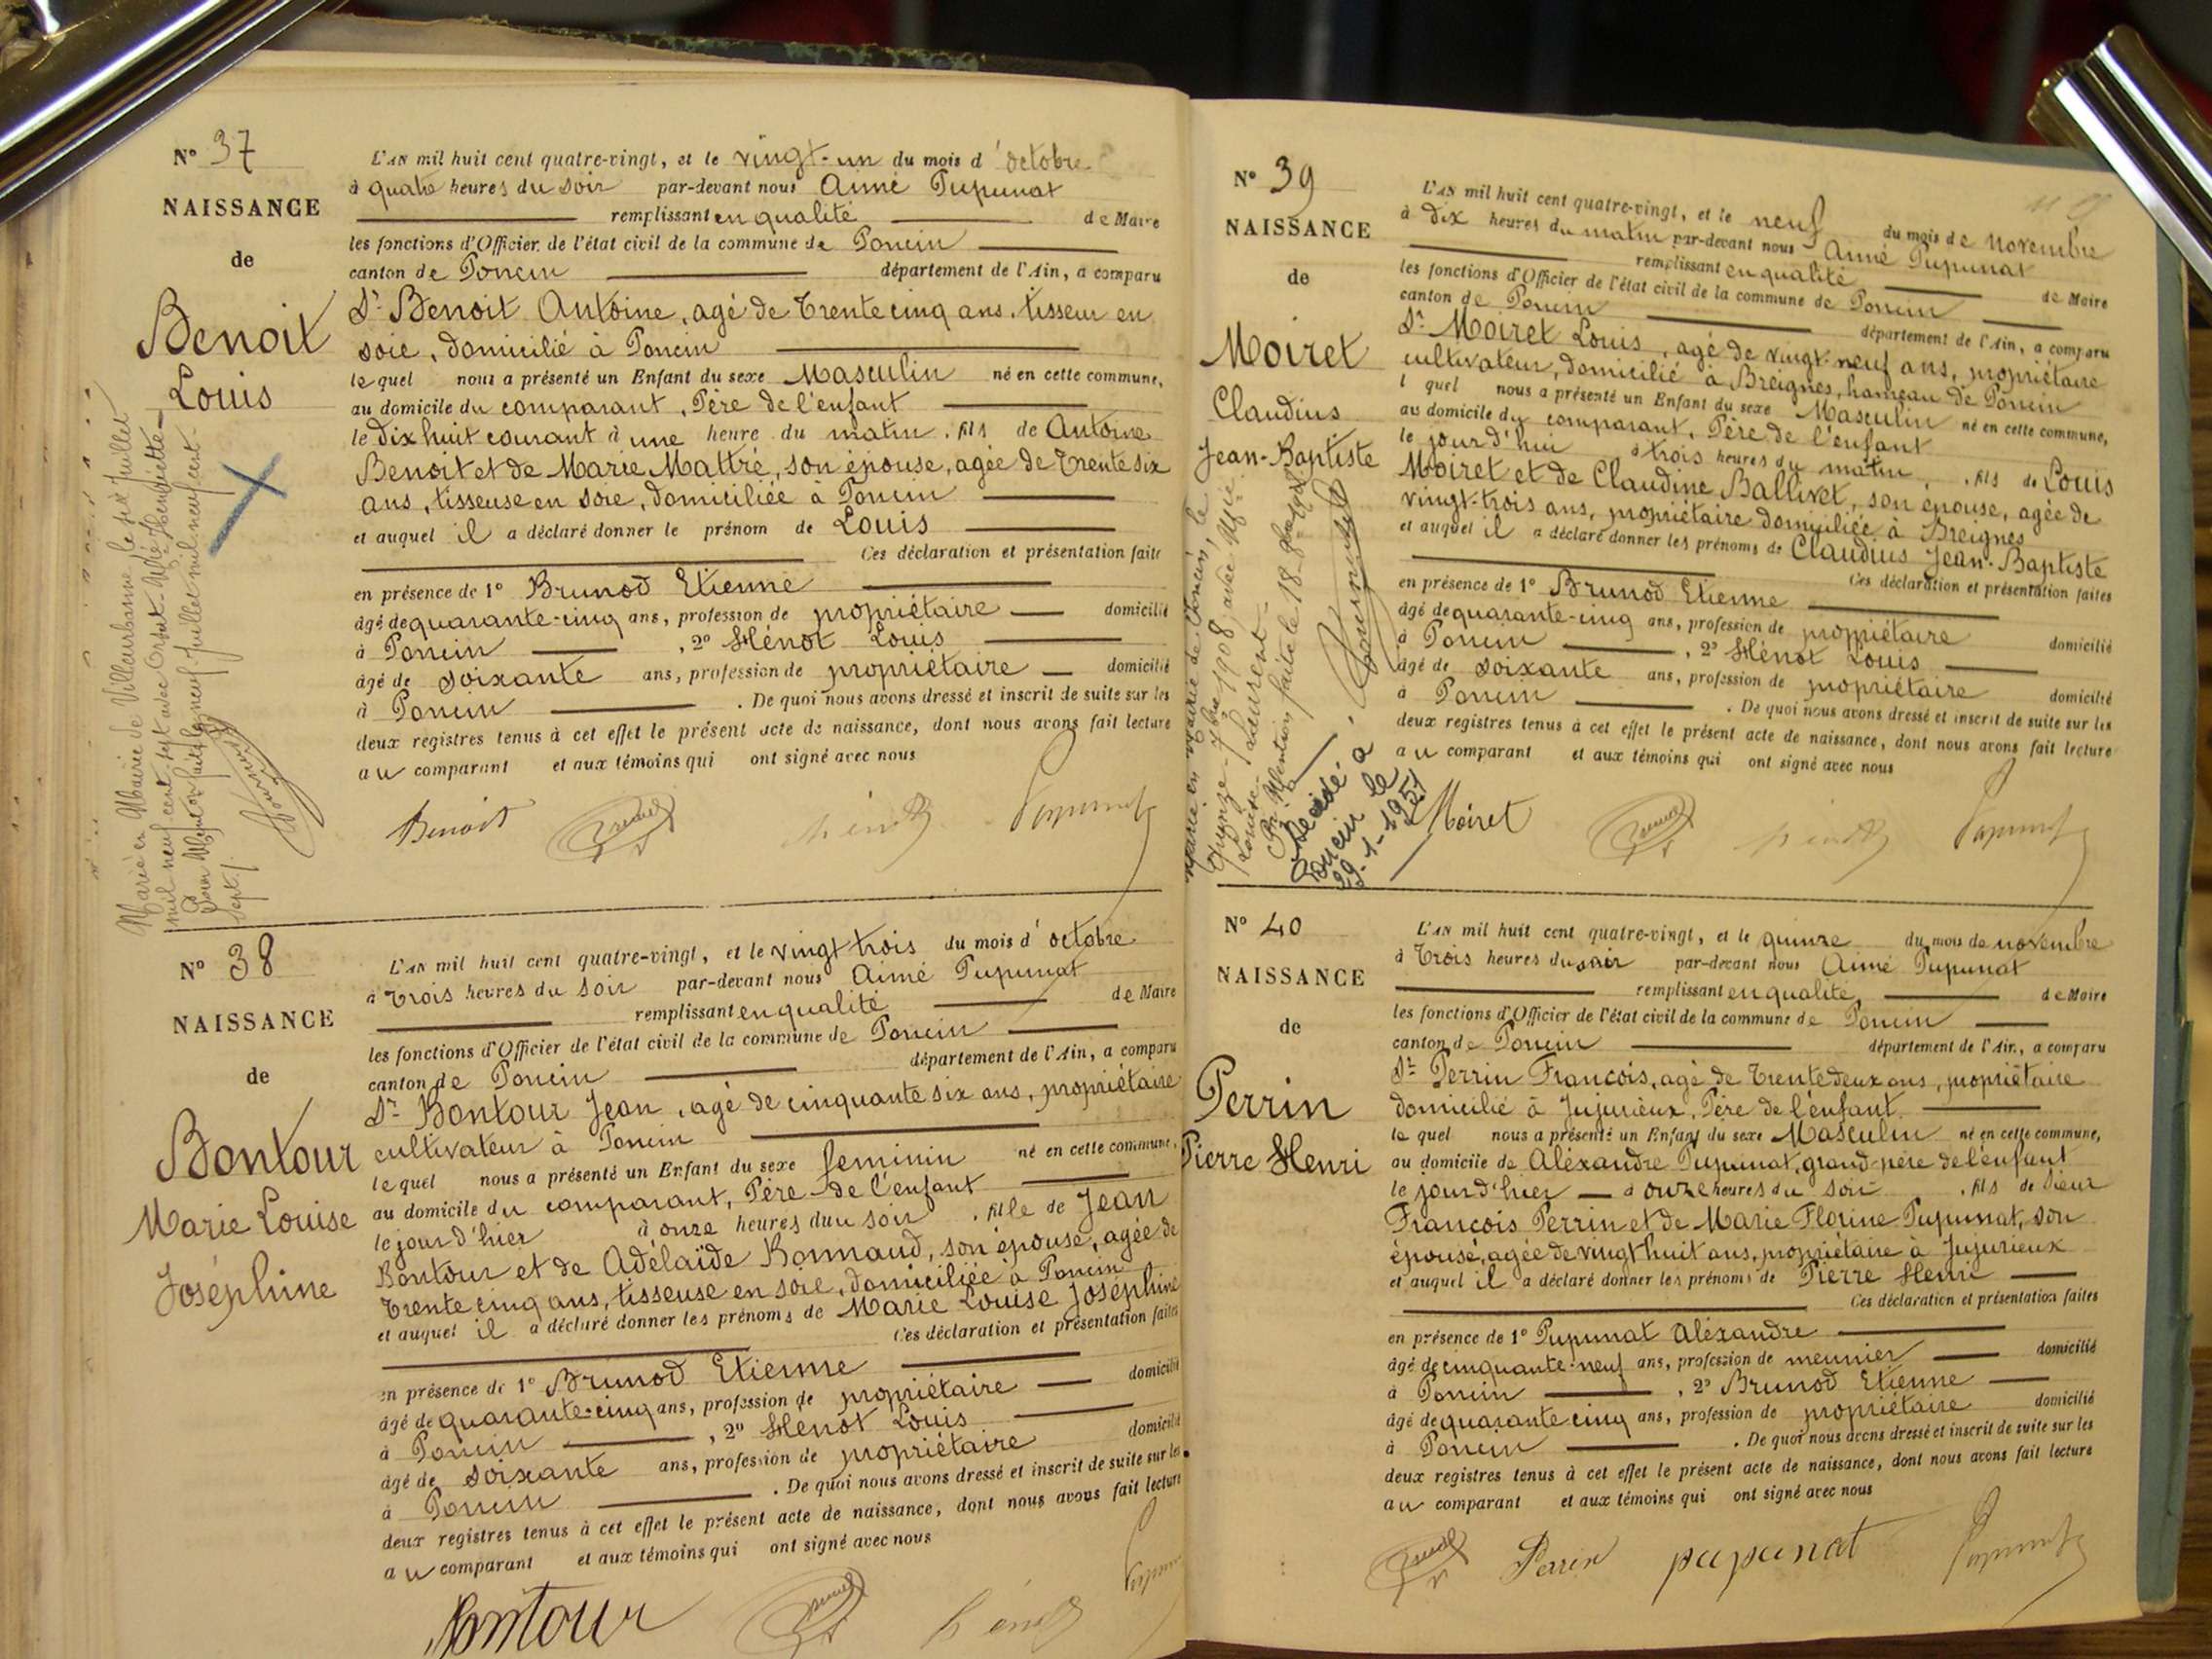 N° 37
NAISSANCE
de
Benoit
Louis
L'AN mil huit cent quatre-vingt, et le vingt-un du mois d'octobre
à quatre heures du soir par-devant nous Aimé Pupunat
remplissant en qualité de Maire
les fonctions d'Officier de l'état civil de la commune de Poncin
canton de Poncin département de l'Ain, a comparu
Sr Benoit Antoine, agé de Trente cinq ans, tisseur en
soie, domicilié à Poncin
lequel nous a présenté un Enfant du sexe Masculin né en cette commune,
au domicile du comparant, Père de l'enfant
le Dix huit courant à une heure du matin, fils de Antoine
Benoit et de Marie Mattré, son épouse, agée de Trente six
ans, tisseuse en soie, domiciliée à Poncin
et auquel il a déclaré donner le prénom de Louis
Ces déclaration et présentation faite
en présence de 1° Brunod Etienne
âgé de quarante-cinq ans, profession de propriétaire domicilié
à Poncin , 2° Hénot Louis
âgé de soixante ans, profession de propriétaire domicilié
à Poncin . De quoi nous avons dressé et inscrit de suite sur les
deux registres tenus à cet effet le présent acte de naissance, dont nous avons fait lecture
au comparant et aux témoins qui ont signé avec nous
Benoit Brunod hénot Pupunat
Marié en Mairie de Villeurbanne le six juillet
mil neuf cent sept avec Henriette
Pour Mention faite le neuf juillet mil neuf cent
sept.
N° 38
NAISSANCE
de
Bontour
Marie Louise
Joséphine
L'AN mil huit cent quatre-vingt, et le vingt trois du mois d'octobre
à Trois heures du soir par-devant nous Aimé Pupunat
remplissant en qualité de Maire
les fonctions d'Officier de l'état civil de la commune de Poncin
canton de Poncin département de l'Ain, a comparu
Sr Bontour Jean, agé de cinquante six ans, propriétaire
cultivateur à Poncin
lequel nous a présenté un Enfant du sexe féminin né en cette commune,
au domicile du comparant, Père de l'enfant
le jour d'hier à onze heures du soir, fille de Jean
Bontour et de Adélaïde Bonnaud, son épouse, agée de
Trente cinq ans, tisseuse en soie, domiciliée à Poncin
et auquel il a déclaré donner les prénoms de Marie Louise Joséphine
Ces déclaration et présentation faites
en présence de 1° Brunod Etienne
âgé de quarante-cinq ans, profession de propriétaire domicilié
à Poncin , 2° Henot Louis
âgé de soixante ans, profession de propriétaire domicilié
à Poncin . De quoi nous avons dressé et inscrit de suite sur les
deux registres tenus à cet effet le présent acte de naissance, dont nous avons fait lecture
au comparant et aux témoins qui ont signé avec nous
Bontour Brunod hénot
N° 39
NAISSANCE
de
Moiret
Claudius
Jean-Baptiste
L'AN mil huit cent quatre-vingt, et le neuf du mois de novembre
à dix heures du matin par-devant nous Aimé Pupunat
remplissant en qualité de Maire
les fonctions d'Officier de l'état civil de la commune de Poncin
canton de Poncin département de l'Ain, a comparu
Sr Moiret Louis, agé de vingt-neuf ans, propriétaire
cultivateur, domicilié à Breignes, hameau de Poncin
l quel nous a présenté un Enfant du sexe Masculin né en cette commune,
au domicile du comparant, Père de l'enfant
le jour d'hui à trois heures du matin, fils de Louis
Moiret et de Claudine Ballivet, son épouse, agée de
vingt-trois ans, propriétaire domiciliée à Breignes
et auquel il a déclaré donner les prénoms de Claudius Jean-Baptiste
Ces déclaration et présentation faites
en présence de 1° Brunod Etienne
âgé de quarante-cinq ans, profession de propriétaire domicilié
à Poncin , 2° Hénot Louis
âgé de soixante ans, profession de propriétaire domicilié
à Poncin . De quoi nous avons dressé et inscrit de suite sur les
deux registres tenus à cet effet le présent acte de naissance, dont nous avons fait lecture
au comparant et aux témoins qui ont signé avec nous
Moiret Brunod hénot Pupunat
Marié en mairie de Poncin, le
quinze 7bre 1908 avec Melle
Louise Laurent
Mention faite le 18
Décédé à
Poncin le
29-1-1951
N° 40
NAISSANCE
de
Perrin
Pierre Henri
L'AN mil huit cent quatre-vingt, et le quinze du mois de novembre
à Trois heures du soir par-devant nous Aimé Pupunat
remplissant en qualité de Maire
les fonctions d'Officier de l'état civil de la commune de Poncin
canton de Poncin département de l'Ain, a comparu
Sr Perrin François, agé de Trente deux ans, propriétaire
domicilié à Jujurieux, Père de l'enfant
lequel nous a présenté un Enfant du sexe Masculin né en cette commune,
au domicile de Aléxandre Pupunat, grand-père de l'enfant
le jour d'hier à onze heures du soir, fils de sieur
François Perrin et de Marie Florine Pupunat, son
épouse, agée de vingt huit ans, propriétaire à Jujurieux
et auquel il a déclaré donner les prénoms de Pierre Henri
Ces déclaration et présentation faites
en présence de 1° Pupunat Aléxandre
âgé de cinquante-neuf ans, profession de meunier domicilié
à Poncin , 2° Brunod Etienne
âgé de quarante cinq ans, profession de propriétaire domicilié
à Poncin . De quoi nous avons dressé et inscrit de suite sur les
deux registres tenus à cet effet le présent acte de naissance, dont nous avons fait lecture
au comparant et aux témoins qui ont signé avec nous
Brunod Perrin pupunat Pupunat